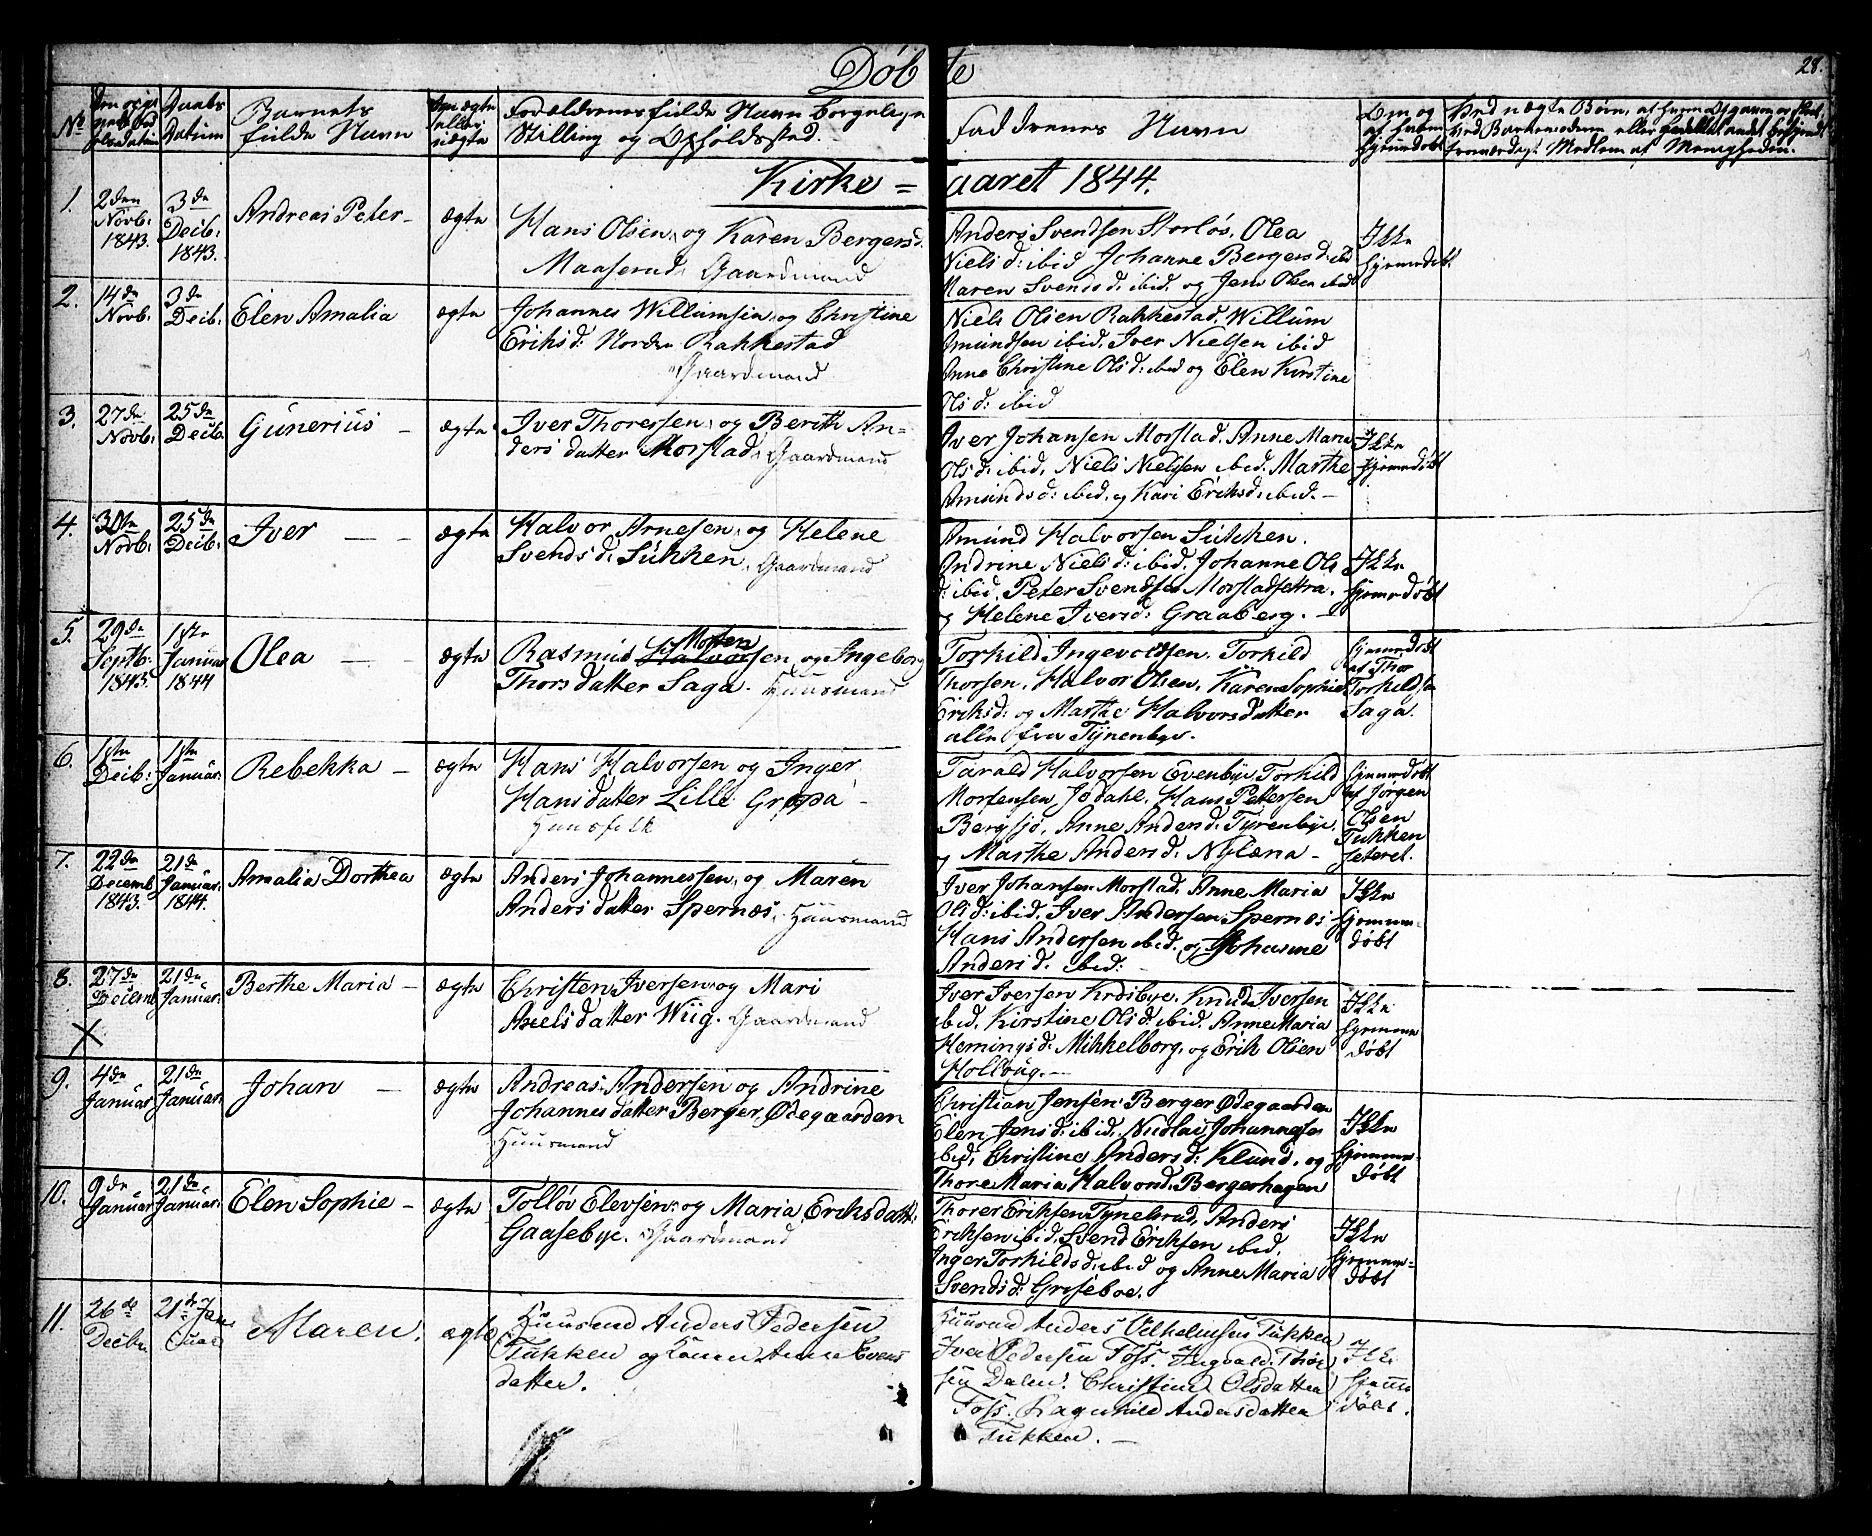 Døb te
28.
No
Daabs
Datum
Barnets
fulde Navn
Om ægte
eller
uægte
Forældrenes fulde Navn borgelige
Stilling og Opholdssted.
Faddrenes Navn
Om og
af hvem
hjemmedøbt
Kirke = aaret 1844.
1. 2den
Novb:
1843.
3de
Decb:
1843.
Andreas Peter
ægte
Hans Olsen og Karen Bergersd:
Maaserud. Gaardmand
Anders Svendsen Storløs, Olea
Niels d: ibid Johanne Bergersd: ibid
Maren Svends d. ibid. og Jens Olsen ibid
Ikke
hjemmedøbt.
2. 14de
Novb:
3de
Decb:
Elen Amalia
ægte
Johannes Willumsen og Christine
Eriksd: Nordre Rakkestad
Gaardmand
Niels Olsen Rakkestad, Willum
Amundsen ibid. Iver Nielsen ibid
Anne Christine Ols d: ibid og Elen Kirstine
Ols d: ibid
3. 27de
Novb:
25de
Decb.
Gunerius –
ægte
Iver Thoresen og Berith An=
ders datter Morstad, Gaardmand
Iver Johansen Morstad, Anne Maria
Ols d: ibid, Niels Nielsen ibid. Marthe
Amunds d: ibid, og Kari Eriksd: ibid. –
Ikke
hjemmedøbt
4. 30te
Novb:
25de
Decb:
Iver – –
ægte
Halvor Arnesen og Helene
Svends d: Sukken, Gaardmand
Amund Halvorsen Sukken.
Andrine Niels d: ibid, Johanne Ols
d: ibid, Peter Svendsen Morstadsetra,
og Helene Ivers d: Graaberg. –
Ikke
hjemmedøbt
5. 29de
Septb:
1843.
1ste
Januar
1844
Olea – –
ægte
Rasmus Halvorsen Morten og Ingeborg
Thorsdatter Saga. Huusmand
Torkild Ingevoldsen, Torkild
Thorsen, Halvor Olsen, Karen Sophie
Eriksd: og Marthe Halvorsdatter
alle fra Tynenbye.
hjemmedøbt
af Thor
Torkildsen
Saga.
6. 1ste
Decb:
1ste
Januar.
Rebekka –
ægte
Hans Halvorsen og Inger
Hansdatter Lille Grøpa –
Huusfolk
Tarald Halvorsen Evenbye Torkild
Mortensen Jødahl, Hans Pettersen
Bergsjø, Anne Andersd. Tyrenbye,
og Marthe Andersd. Nylæna –
hjemmedøbt
af Jørgen
Olsen
Tukken
seteret.
7. 22de
Decemb
1843.
21de
Januar.
1844.
Amalia Dorthea
ægte
Anders Johannessen og Maren
Anders datter Spernæs, Huusmand
Iver Johansen Morstad, Anne Maria
Ols d: ibid, Iver Andersen Spernæs
Hans Andersen ibid. og Johanne
Anders d. ibid: –
Ikke
hjemme=
døbt
8. 27de
21de
Januar.
Berthe Maria –
ægte
Christen Iversen og Mari
Axels datter Wiig. Gaardmand
Iver Iversen Krosbye, Knud Iversen
ibid, Kirstine Ols d: ibid. Anne Maria
Hemingsd: Mikkelborg, og Erik Olsen
Hollaug. –
Ikke
hjemme
døbt
X
9. 4de
Januar
21de
Januar.
Johan –
ægte
Andreas Andersen og Andrine
Johannes datter Berger Ødegaarden
Huusmand
Christian Jensen Berger Ødegaarden
Elen Jens d: ibid, Nicolai Johannesen
ibid, Christine Anders d: Klund, og
Thore Maria Halvorsd. Bergerhagen
Ikke
hjemme=
døbt
10. 9de
Januar
21de
Januar.
Elen Sophie –
ægte
Tolløv Elevsen og Maria Eriksdatt:
Gaasebye. Gaardmand
Thorer Eriksen Tynelsrud, Anders
Eriksen ibid, Svend Eriksen ibid,
Inger Torkilds d: ibid og Anne Maria
Svends d: Griseboe.
Ikke
hjemme=
døbt
11. 26de
Decbr.
21de Jan
uar
Maren.
ægte
Huusmd Anders Pedersen
Tukken og Karen Anne Evens
datter.
Huusmd Anders Vilhelmsen Tukken
Iver Pedersen Foss. Ingvald Thor
sen Dalen. Christine Olsdatter
Foss. Ragnhild Andersdatter
Tukken. –
Ikke
hjemme
døbt.